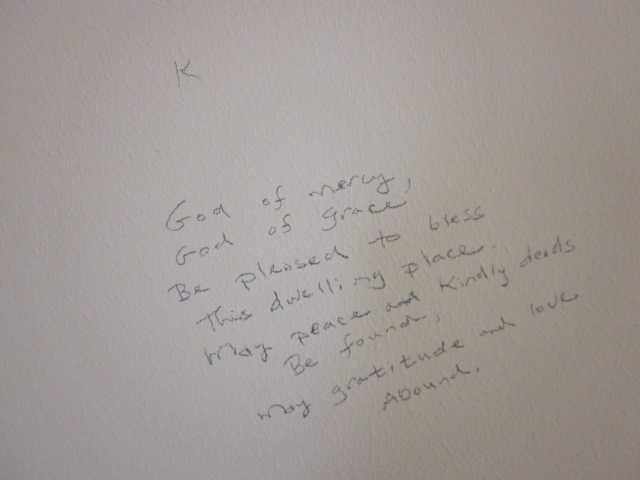 K
God of mercy,
God of grace
Be pleased to bless
This dwelling place.
May peace and kindly deeds
Be found;
May gratitude and love
Abound.